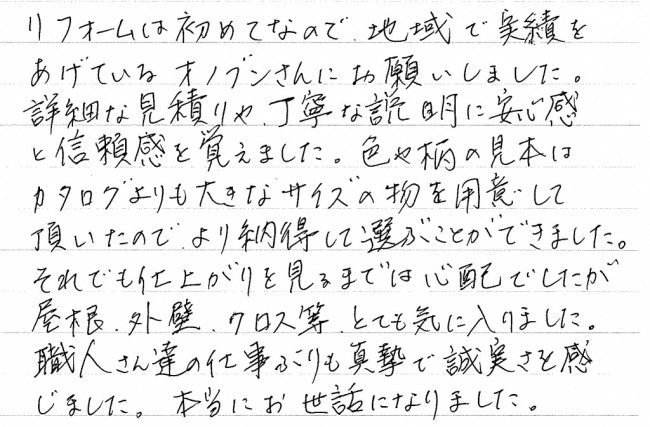 リフォームは初めてなので、地域で実績を
あげているオノブンさんにお願いしました。
詳細な見積りや、丁寧な説明に安心感
と信頼感を覚えました。色や柄の見本は
カタログよりも大きなサイズの物を用意して
頂いたので、より納得して選ぶことができました。
それでも仕上がりを見るまでは心配でしたが
屋根、外壁、クロス等、とても気に入りました。
職人さん達の仕事ぶりも真摯で誠実さを感
じました。本当にお世話になりました。